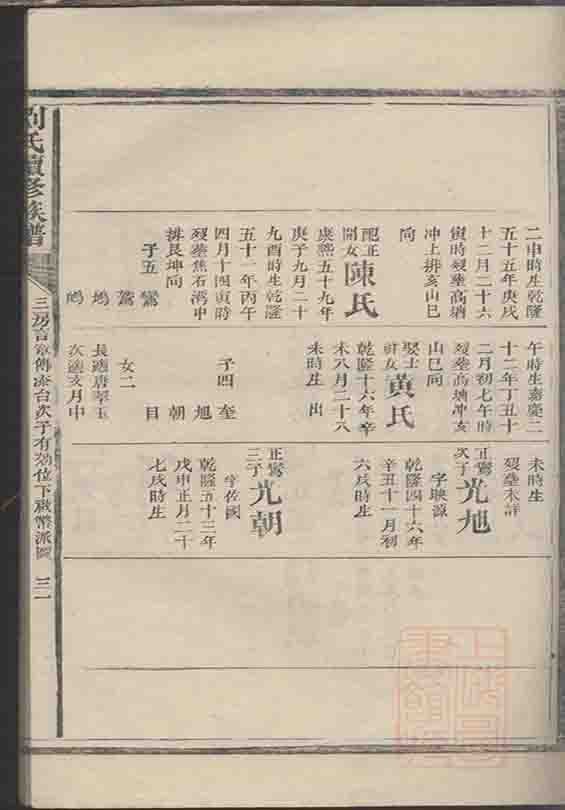 二申時生乾隆
五十五年庚戌
十二月二十六
寅時歿塟高塘
冲上排亥山巳
向
配正
開女陳氏
康熙五十九年
庚子九月二十
九酉時生乾隆
五十一年丙午
四月十四寅時
歿塟焦石灣中
排艮坤向
子五
鸞
鶱
鳩
鳴
午時生嘉慶二
十二年丁丑十
二月初七午時
歿塟高塘冲亥
山巳向
娶士
祥女黃氏
乾隆十六年辛
未八月二十八
未時生 出
子四 奎
旭
朝
目
女二
長適唐翠玉
次適亥月中
未時生
歿塟未詳
正鸞
次子光旭
字映源
乾隆四十六年
辛丑十一月初
六戌時生
正鸞
三子光朝
字佐國
乾隆五十三年
戊申正月二十
七戌時生
劉氏續修族譜
三房言
傳 台次子有 位下
三一